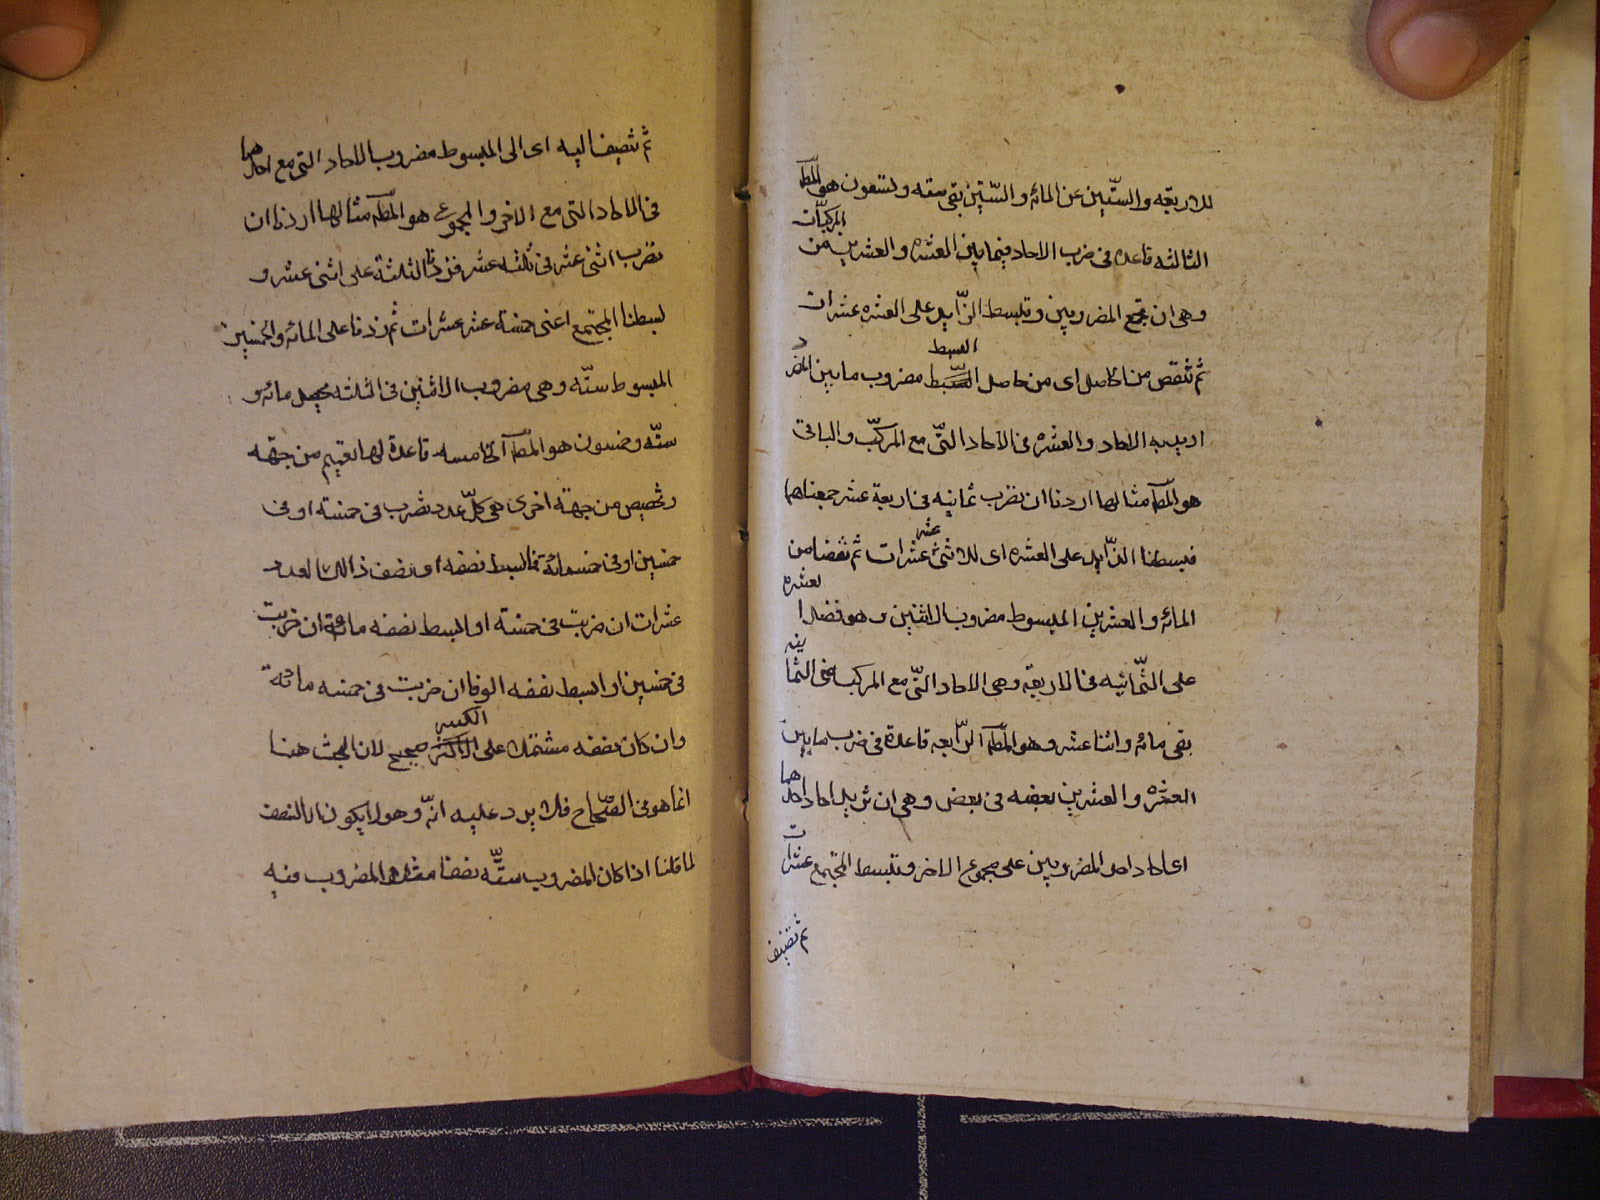 للاربعه والستّين عن المائه والستّين بقى سته وتسعون هو المطّ
الثالثه قاعده فى ضرب الاحاد فيما بين العشره والعشرين من المركبّات
وهى ان تجمع المضروبين وتبسط الزّايد على العشره عشرات
ثم تنقص من الحاصل اى من حاصل البسط مضروب ما بين المفرد
اريد به الاحاد والعشره فى الاحاد التّى مع المركّب والباقى
هو المطّ مثالها اردنا ان نضرب ثمانيه فى اربعة عشر جمعناهما
فبسطنا الزّايد على العشره اى للاثنى عشر عشرات ثم نقضنا من
المائه والعشرين المبسوط مضروب الاثنين وهو فضل العشره
على الثّمانيه فى الاربعه وهى الاحاد التّى مع المركب فى الثمانيه
بقى مائه واثنا عشر وهو المطّ الرّابعه قاعدة فى ضرب ما بين
العشره والعشرين بعضه فى بعض وهى ان تزيد احاد احدهما
اى احاد احد المضروبين على مجموع الاخر وتبسط المجتمع عشرات
ثم تضيف
ثم تضيف اليه اى الى المبسوط مضروب الاحاد التى مع احدهما
فى الاحاد التى مع الاخر والمجموع هو المطّ مثالها اردنا ان
نضرب اثنى عشر فى ثلثه عشر فزدنا الثلثة على اثنى عشر و
بسطنا المجتمع اعنى خمسة عشر عشرات ثم زدنا على المائه والخمسين
المبسوط ستّه وهى مضروب الاثنين فى الثلثه يحصل مائه و
ستّه وخمسون هو المطّ الخامسه قاعدة لها تعميم من جهه
وتخصيص من جهة اخرى هى كلّ عدد تضرب فى خمسة او فى
خمسين او فى خمسمائة فابسط نصفه او نصف ذالك العدد
عشرات ان ضربت فى خمسة او ابسط نصفه مائة ان ضربت
فى خمسين او ابسط نصفه الوفا ان ضربت فى خمسه مائة
وان كان نصفه مشتملا على الكسر صحيح لان البحث هنا
انما هو فى الصّحاح فلا يرد عليه انّه وهو لا يكون الا بالنصف
لما قلنا اذا كان المضروب ستّه نصفا مثلا والمضروب فيه